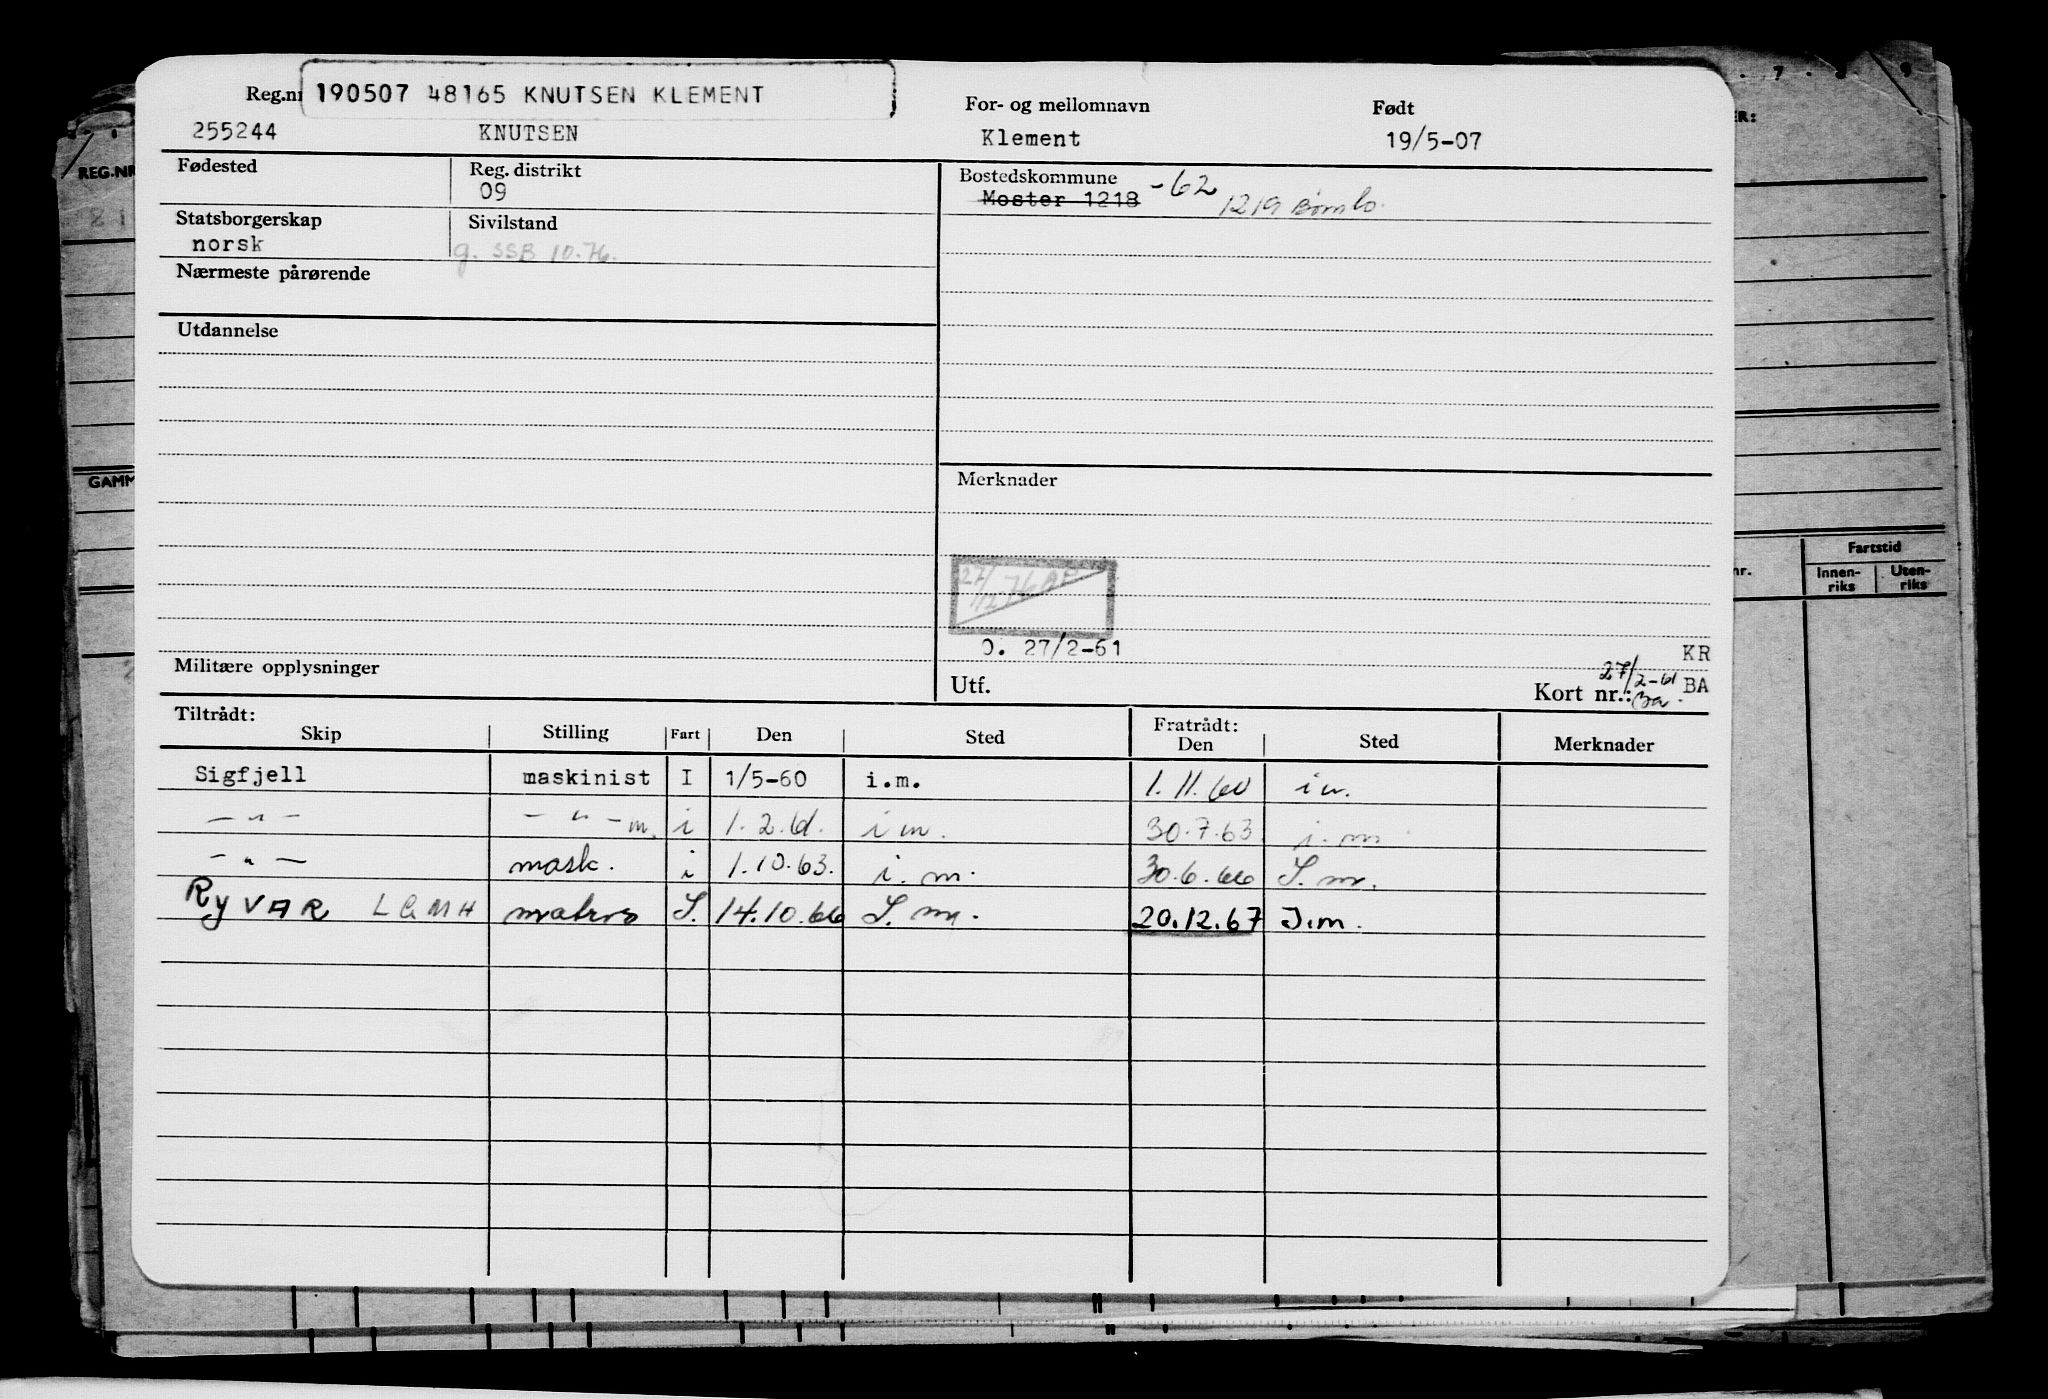 Reg.nr 190507 48165 KNUTSEN KLEMENT For- og mellomnavn Født
255244 KNUTSEN Klement 19/5-07
Fødested Reg. distrikt Bostedskommune
09 Moster 1218 -62 1219 Bømlo.
Statsborgerskap Sivilstand
norsk g. SSB 10.76.
Nærmeste pårørende
Utdannelse
Merknader
27/12-76
O. 27/2-61 KR
Militære opplysninger Utf. Kort nr.: 27/2-61 Ba. BA
Tiltrådt: Fratrådt:
Skip Stilling Fart Den Sted Den Sted Merknader
Sigfjell maskinist I 1/5-60 i.m. 1.11.60 i m.
— " — — " — m. i 1.2.61. i m. 30.7.63 i. m.
— " — mask. i 1.10.63. i. m. 30.6.66 S. m.
RyVAR LGMH matros S. 14.10.66 S. m. 20.12.67 I.m.
REG.NR
GAMM
7 8 9
ER:
nr. Fartstid
Innen- Uten-
riks riks